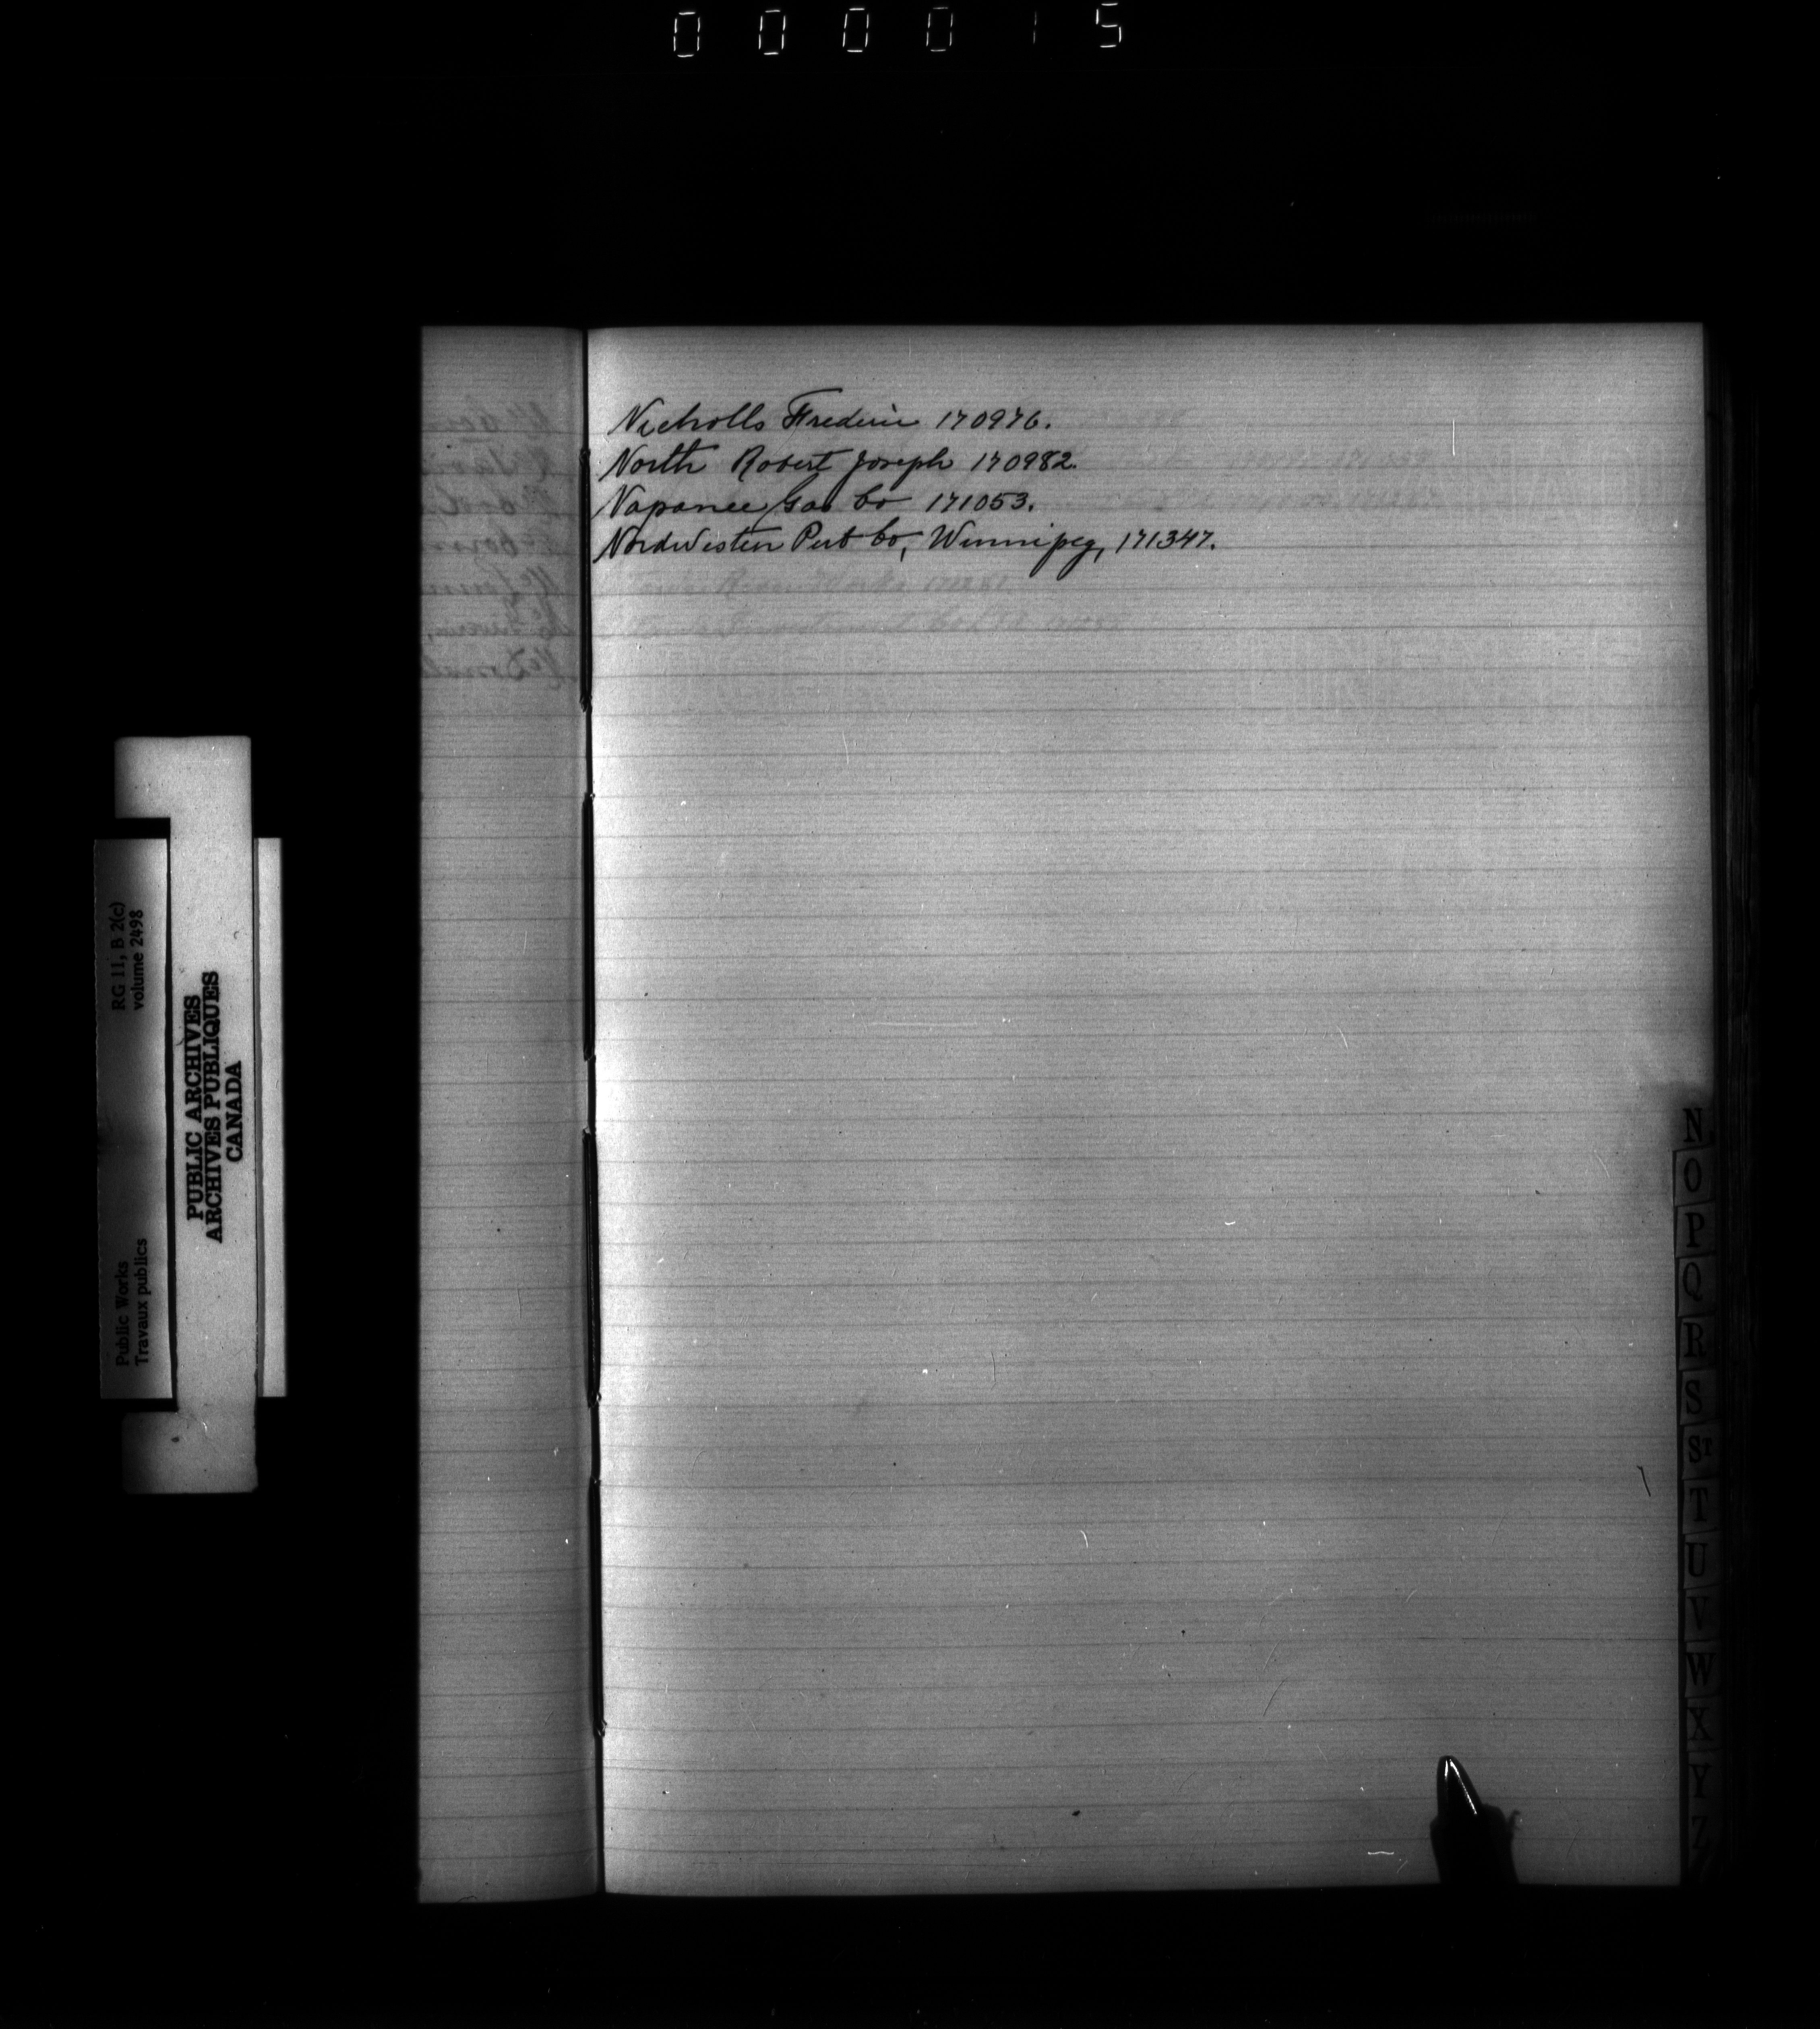 000015
Nicholls Frederic 170976.
North Robert Joseph 170982.
Napanee Gas Co 171053.
Nordwesten Pub Co, Winnipeg, 171347.
RG 11, B 2(c)
volume 2498
Public Works
Travaux publics
PUBLIC ARCHIVES
ARCHIVES PUBLIQUES
CANADA
N
O
P
Q
R
S
ST
T
U
V
W
X
Y
Z